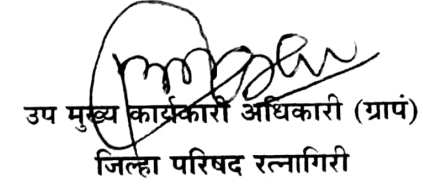 उप मुख्य कार्यकारी अधिकारी (ग्रापं)
जिल्हा परिषद रत्नागिरी